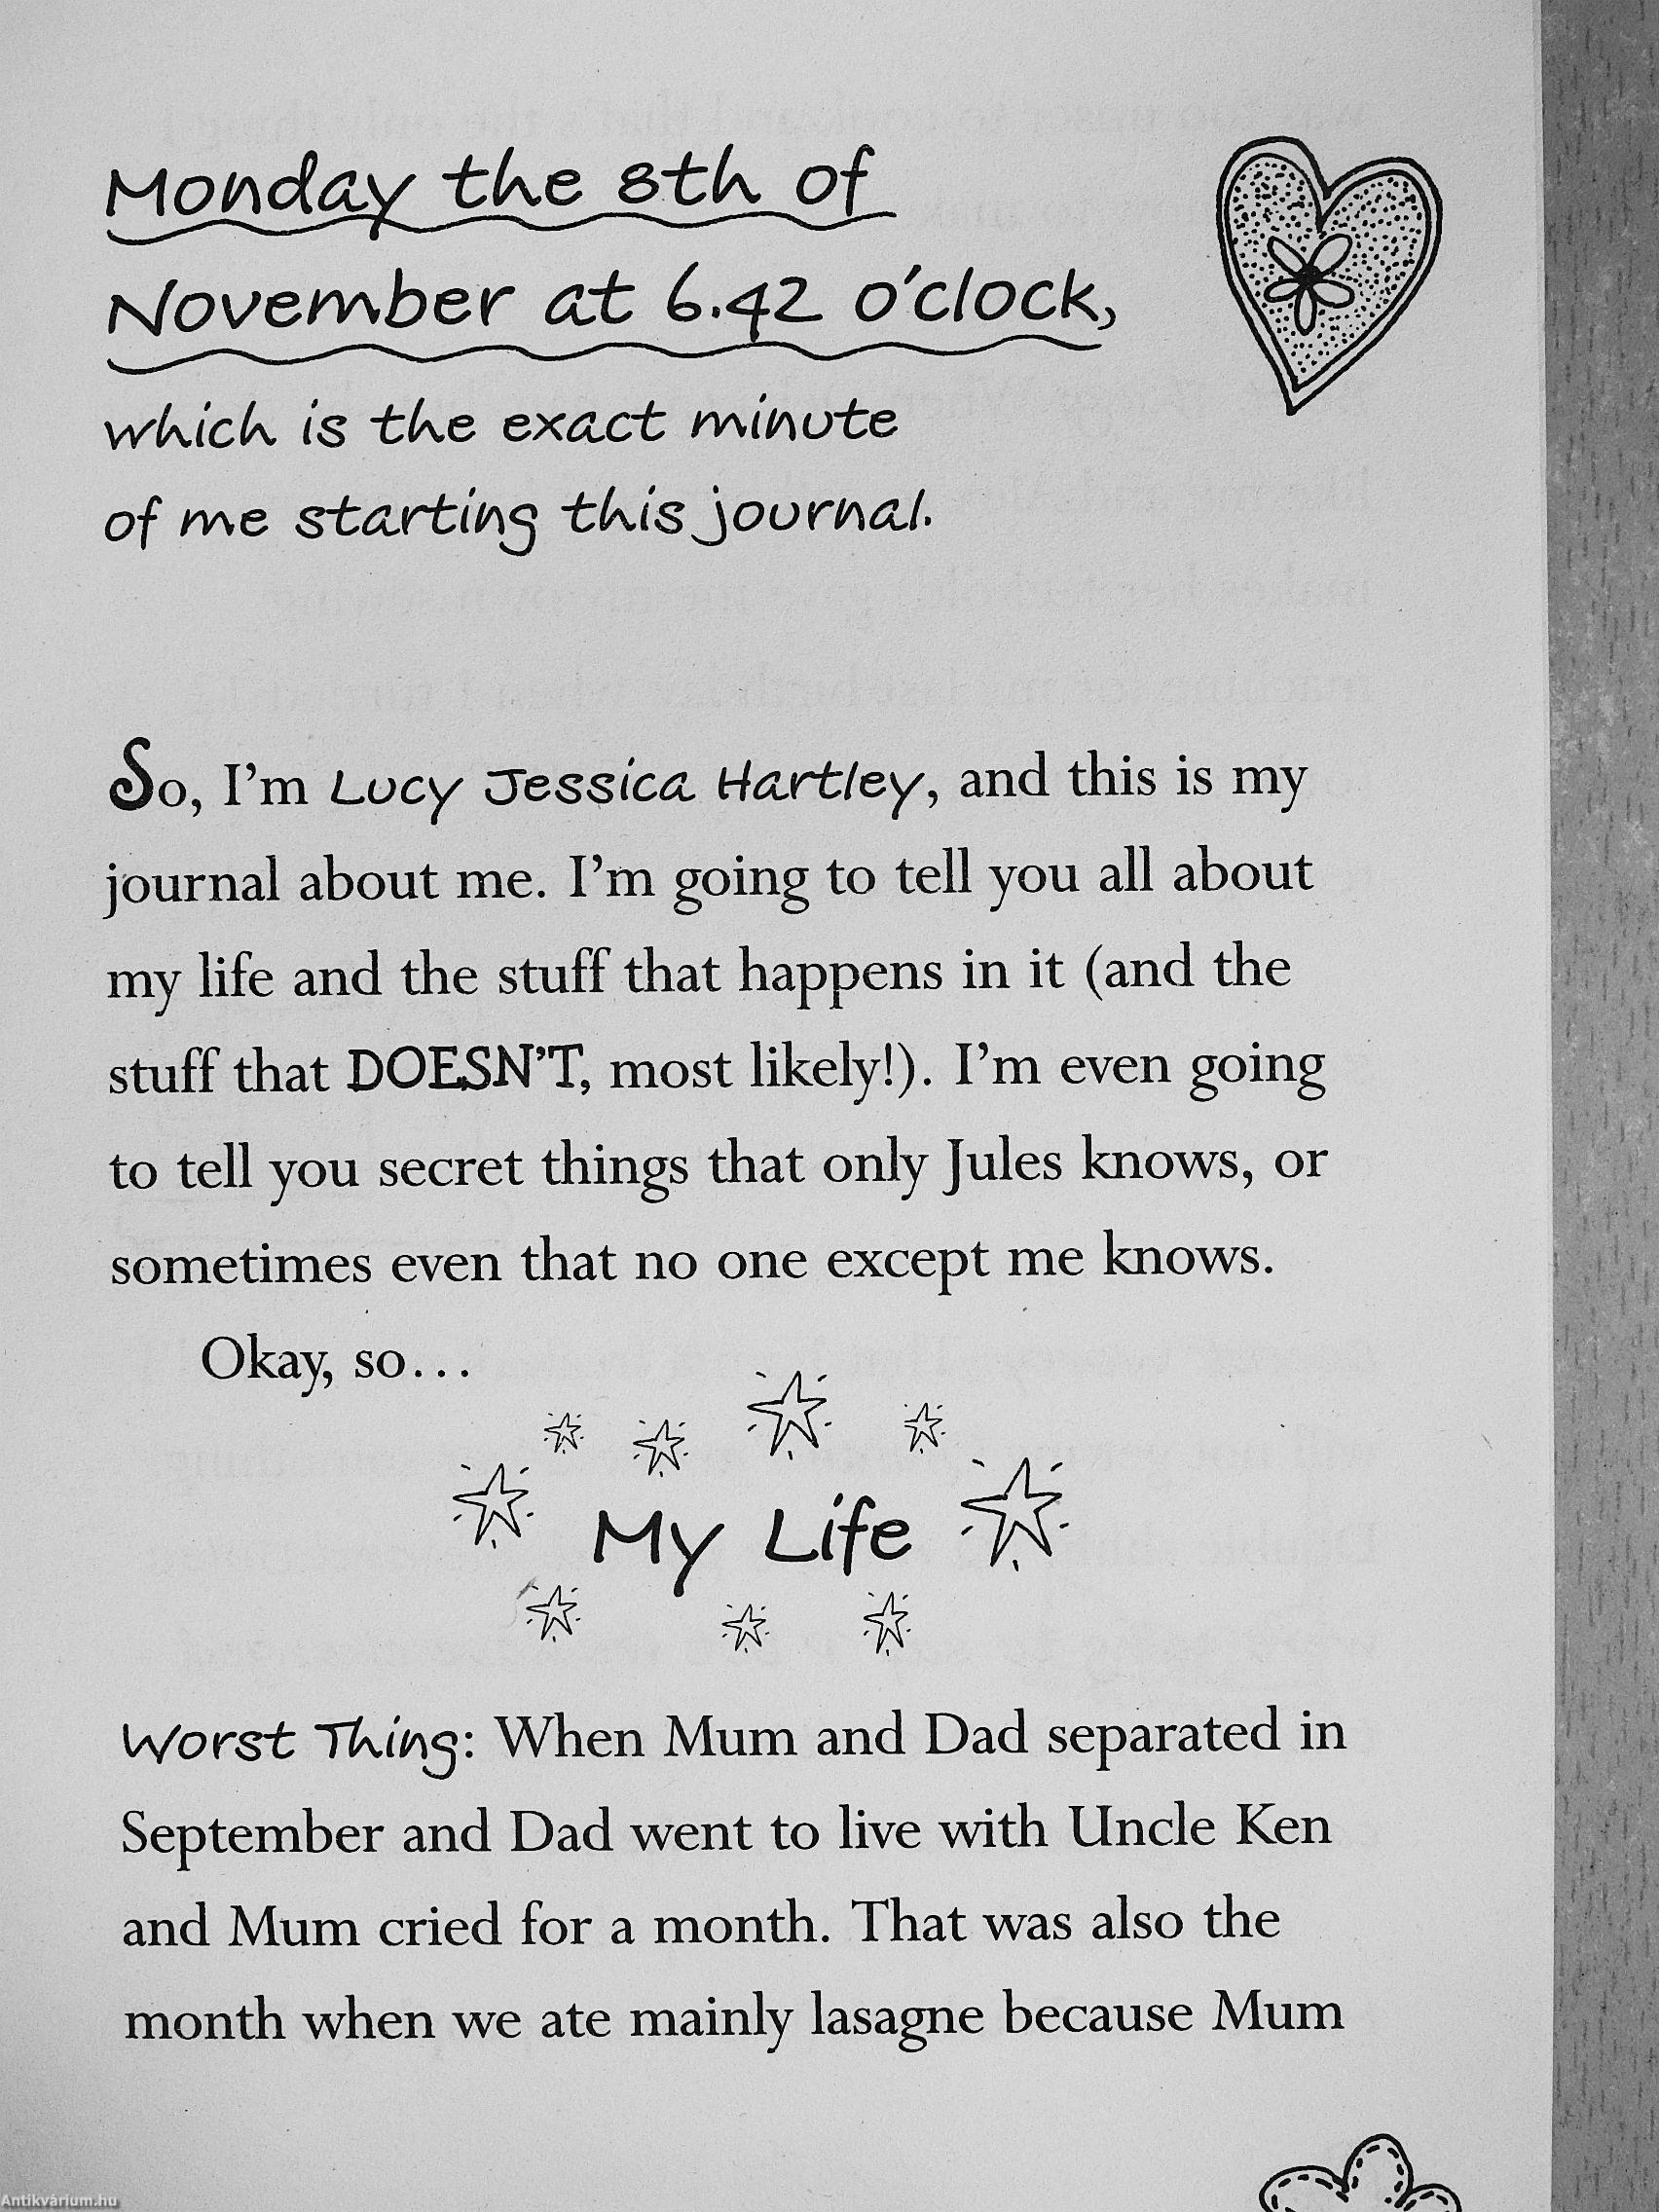 Monday the 8th of
November at 6.42 o'clock,
which is the exact minute
of me starting this journal.
So, I'm Lucy Jessica Hartley, and this is my
journal about me. I'm going to tell you all about
my life and the stuff that happens in it (and the
stuff that DOESN'T, most likely!). I'm even going
to tell you secret things that only Jules knows, or
sometimes even that no one except me knows.
Okay, so...
My Life
Worst Thing: When Mum and Dad separated in
September and Dad went to live with Uncle Ken
and Mum cried for a month. That was also the
month when we ate mainly lasagne because Mum
Antikvárium.hu